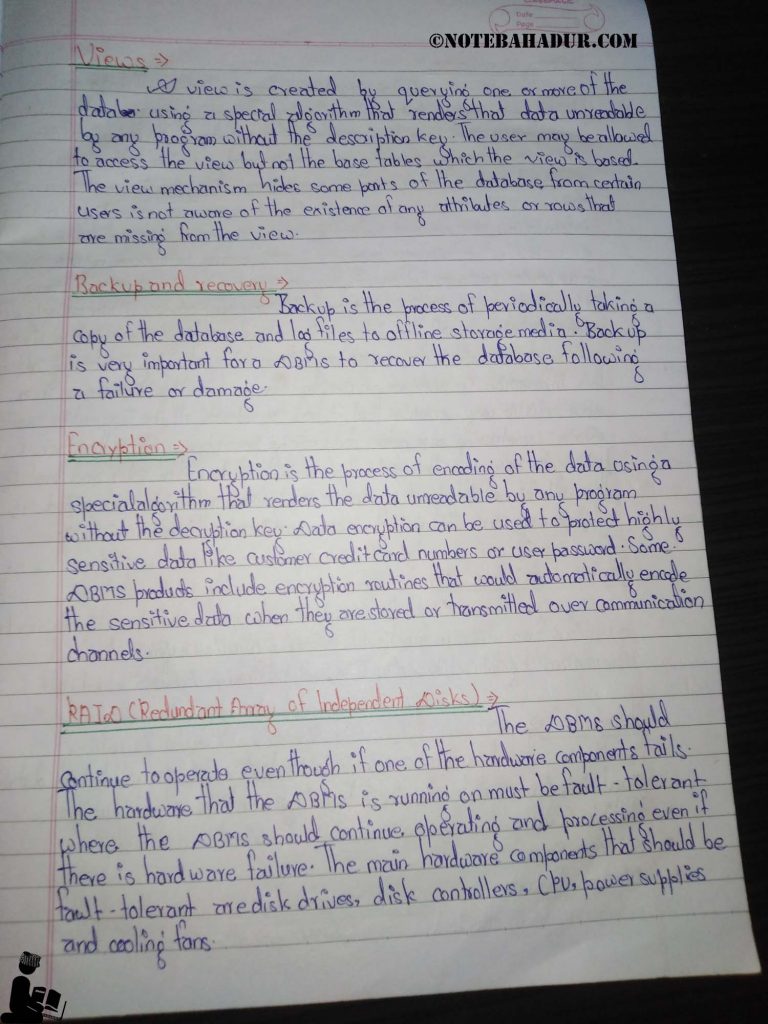 Date
Page
©NOTEBAHADUR.COM
Views ⇒
A view is created by querying one or more of the
databs. using a special algorithm that renders that data unreadable
by any program without the description key. The user may be allowed
to access the view but not the base tables which the view is based.
The view mechanism hides some parts of the database from certain
users is not aware of the existence of any attributes or rows that
are missing from the view.
Backup and recovery ⇒
Backup is the process of periodically taking a
copy of the database and log files to offline storage media. Backup
is very important for a DBMS to recover the database following
a failure or damage.
Encryption ⇒
Encryption is the process of encoding of the data using a
special algorithm that renders the data unreadable by any program
without the decryption key. Data encryption can be used to protect highly
sensitive data like customer credit card numbers or user password. Some
DBMS products include encryption routines that would automatically encode
the sensitive data when they are stored or transmitted over communication
channels.
RAID (Redundant Array of Independent Disks) ⇒
The DBMS should
continue to operate even though if one of the hardware components fails.
The hardware that the DBMS is running on must be fault-tolerant
where the DBMS should continue operating and processing even if
there is hardware failure. The main hardware components that should be
fault-tolerant are disk drives, disk controllers, CPU, power supplies
and cooling fans.